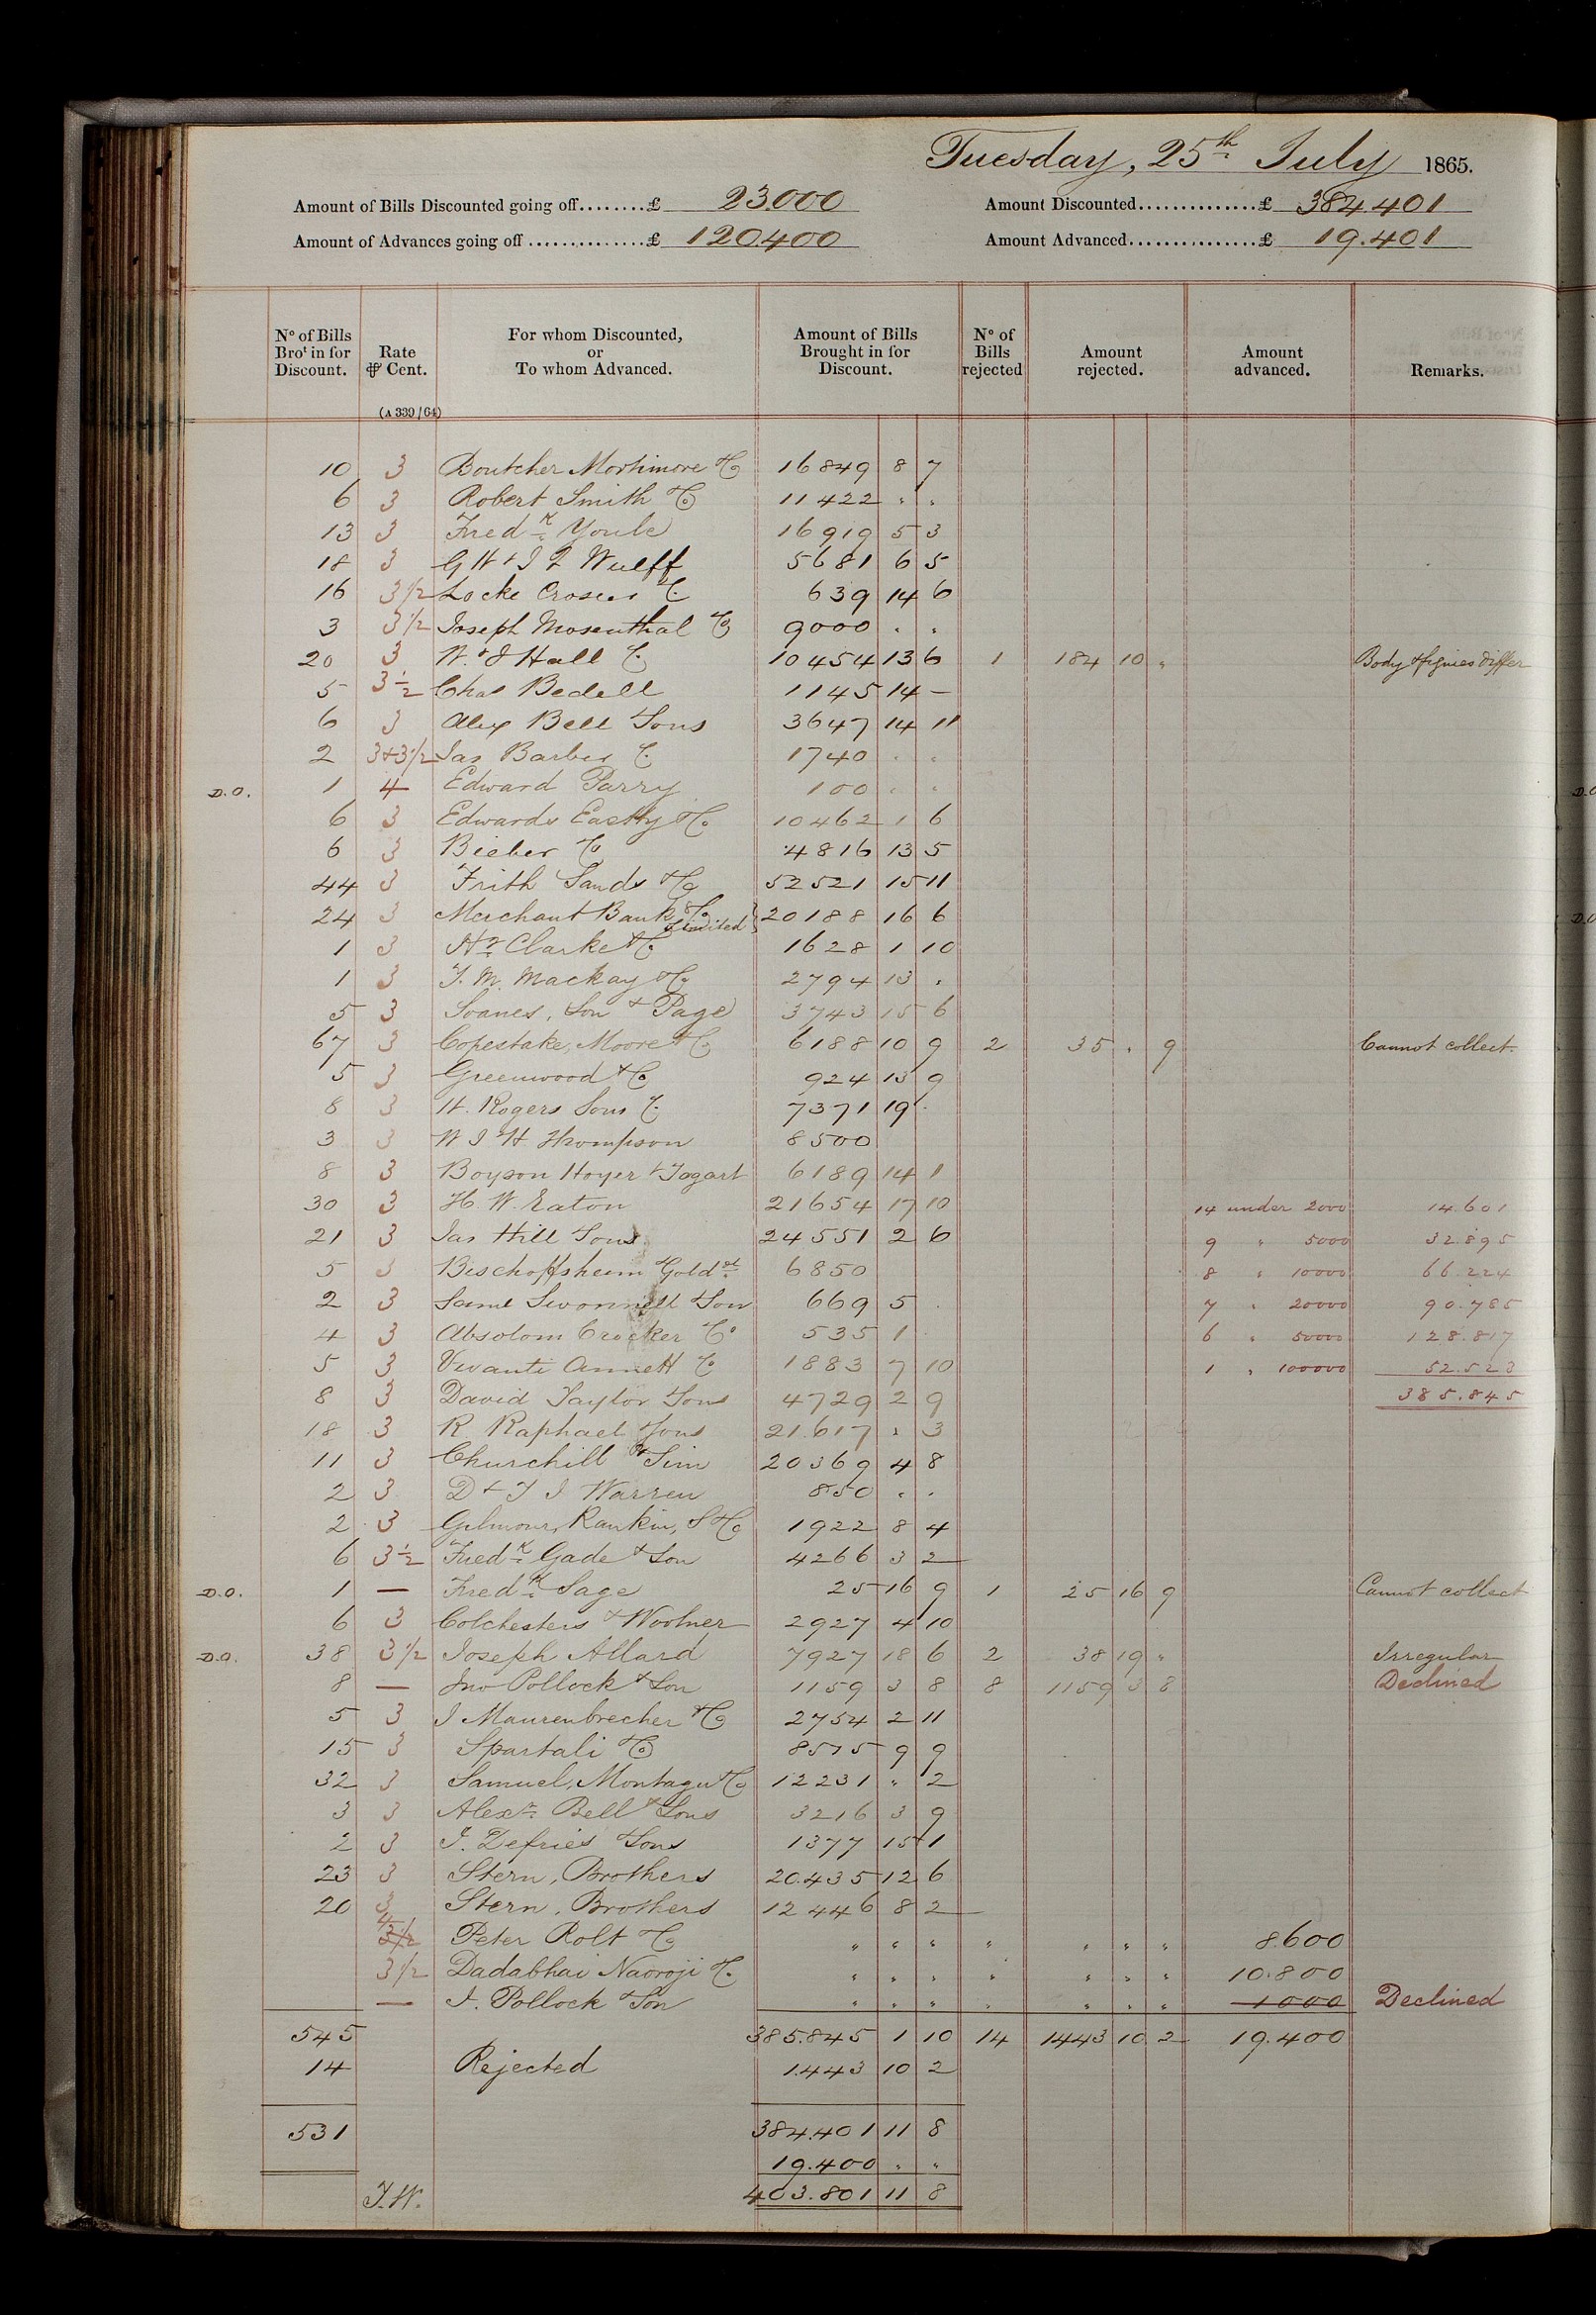 Tuesday, 25th July 1865.
Amount of Bills Discounted going off........£ 23.000 Amount Discounted..............£ 384.401
Amount of Advances going off..............£ 120.400 Amount Advanced...............£ 19.401
No of Bills Brot in for Discount. Rate ⅌ Cent. (A 339/64) For whom Discounted, or To whom Advanced. Amount of Bills Brought in for Discount. No of Bills rejected Amount rejected. Amount advanced. Remarks.
10 3 Boutcher Mortimore & Co 16849 8 7
6 3 Robert Smith & Co 11422 " "
13 3 Fredk Youle 16919 5 3
18 3 G H & I F Wulff 5681 6 5
16 3½ Locke Crosier & Co 639 14 6
3 3½ Joseph Mosenthal & Co 9000 " "
20 3 W. & I Hall & Co 10454 13 6 1 184 10 " Body & figures differ
5 3½ Chas Bedell 1145 14 —
6 3 Alex Bell & Sons 3647 14 11
2 3&3½ Jas Barber & Co 1740 " "
D.O. 1 4 Edward Parry 100 " "
6 3 Edwards Eastty & Co 10462 1 6
6 3 Bieber & Co 4816 13 5
44 3 Frith Sands & Co 52521 15 11
24 3 Merchant Bank & Co Limited 20188 16 6
1 3 Hy Clarke & Co 1628 1 10
1 3 T. M. Mackay & Co 2794 13 "
5 3 Soanes, Son & Page 3743 15 6
67 3 Copestake, Moore & Co 6188 10 9 2 35 " 9 Cannot collect.
5 3 Greenwood & Co 924 13 9
8 3 H. Rogers Sons & Co 7371 19 "
3 3 W J & H Thompson 8500
8 3 Boyson Hoyer & Tagart 6189 14 1
30 3 H. W. Eaton 21654 17 10 14 under 2000 14.601
21 3 Jas Hill & Sons 24551 2 6 9 " 5000 32.895
5 3 Bischoffsheim & Goldst 6850 8 " 10000 66.224
2 3 Saml Swonnell & Son 669 5 " 7 " 20000 90.785
4 3 Absolom Crocker & Co 535 1 " 6 " 50000 128.817
5 3 Vivanti Annett & Co 1883 7 10 1 " 100000 52.523
8 3 David Taylor & Sons 4729 2 9 385.845
18 3 R. Raphael & Sons 21.617 " 3
11 3 Churchill & Sim 20369 4 8
2 3 D & T I Warren 850 " "
2 3 Gilmour, Rankin, S & Co 1922 8 4
6 3½ Fredk Gade & Son 4266 3 2
D.O. 1 — Fredk Sage 25 16 9 1 25 16 9 Cannot collect
6 3 Colchesters & Woolner 2927 4 10
D.O. 38 3½ Joseph Allard 7927 18 6 2 38 19 " Irregular
8 — Jno Pollock & Son 1159 3 8 8 1159 3 8 Declined
5 3 I Maurenbrecher & Co 2754 2 11
15 3 Spartali & Co 8575 9 9
32 3 Samuel, Montagu & Co 12231 " 2
3 3 Alexr Bell & Sons 3216 3 9
2 3 I. Defries & Sons 1377 15 1
23 3 Stern, Brothers 20.435 12 6
20 3 Stern, Brothers 12446 8 2
4 3½ Peter Rolt & Co " " " " " " " 8.600
3½ Dadabhai Naoroji & Co " " " " " " " 10.800
— I. Pollock & Son " " " " " " " 1000 Declined
545 385.845 1 10 14 1443 10 2 19.400
14 Rejected 1.443 10 2
531 384.401 11 8
19.400 " "
T.W. 403.801 11 8
D.O
D.O